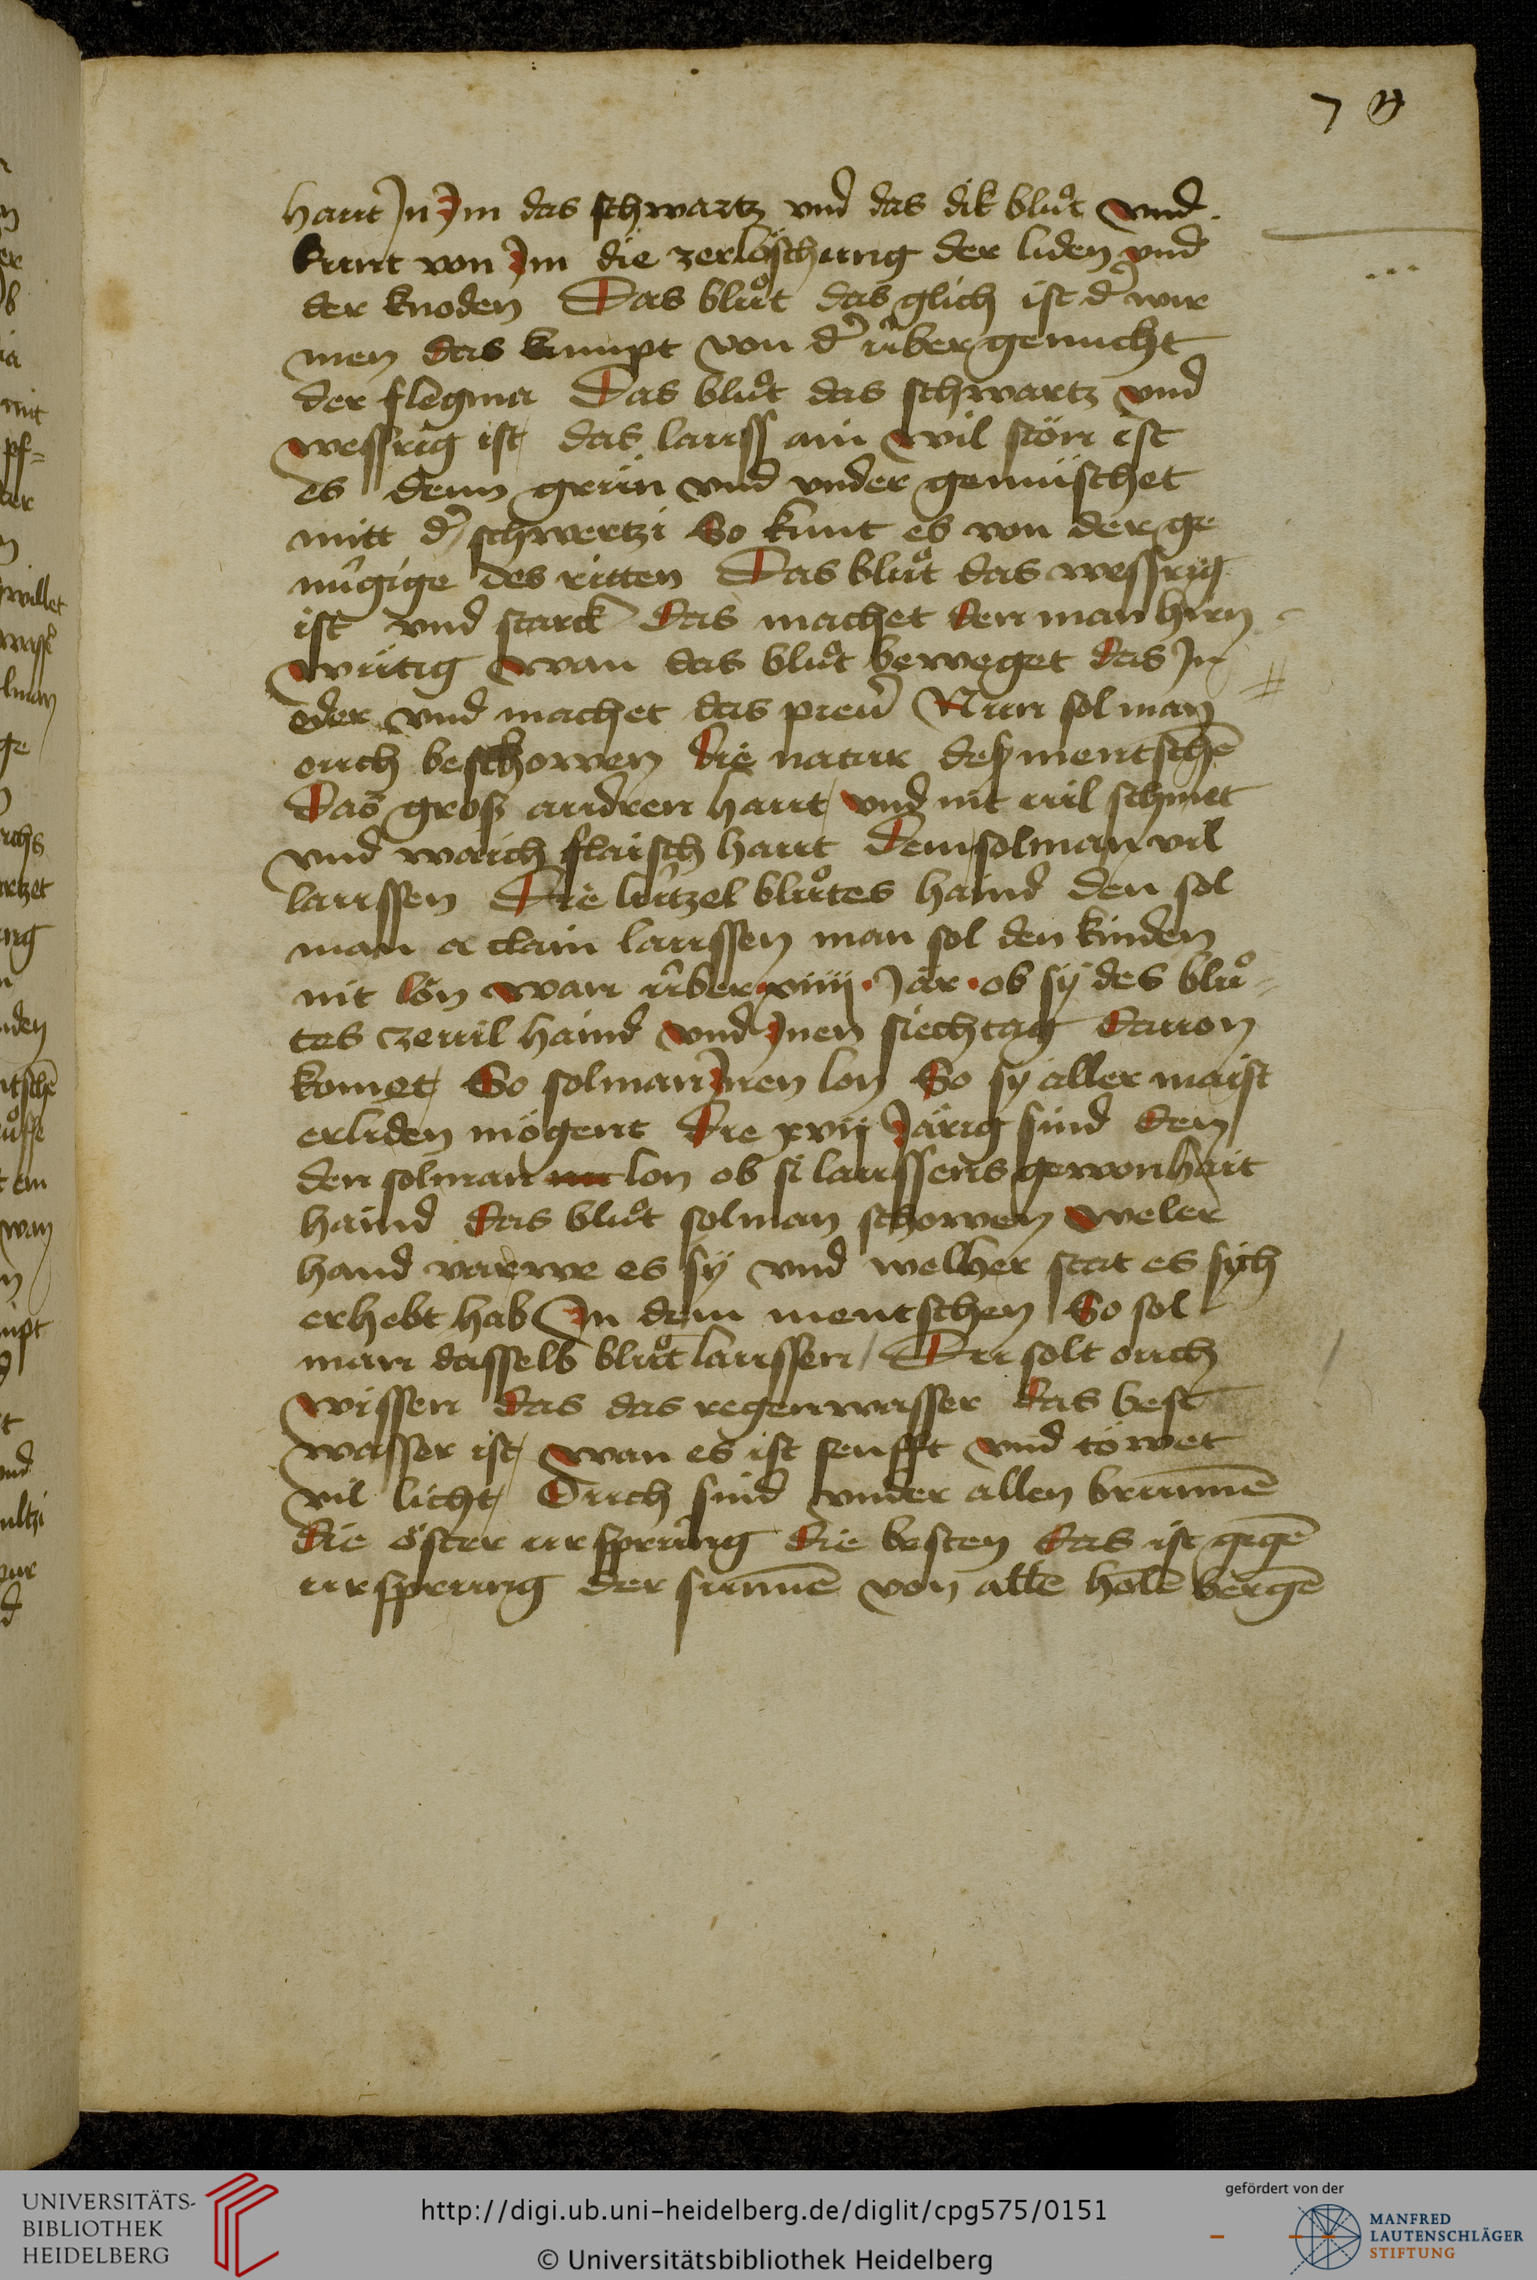 haut Jn Jm das schwartz vnd das dik bluͦt vnd
kunt von Jm die zerlöschung der liden vnd
der knoden Das bluͦt das glich ist dˀ wur
men das kumpt von dˀ über genucht
der flegma Das bluͦt das schwartz vnd
wessrig ist das lauss ain wil stön ist
es denn grün vnd vnder gemüschet
mitt dˀ schwertzi So kunt es von der ge
nügige des ritten Das bluͦt das wessrig
ist vnd starck das machet den man hirn
wütig wan das bluͦt beweget das Jn
oder vnd machet das Nun sol man
ouch beschowen die natur des mentschē
das gross audren haut vnd nit uil schmet
vnd waich flaisch haut dem sol man vil
laussen Die lützel bluͦtes haind den sol
man a clain laussen man sol den kinden
nit lön wan über xiiij Jar ob sÿ des bluͦ
tes ze uil haind vnd Jnen siechtag dauon
komet So sol man Jnen lon So sÿ aller maist
erliden mögent die xvij Järig sind den
den sol man lon ob si laussens gewonhait
haind das bluͦt sol man schowen weler
hand varwe es sÿ vnd welher stat es sich
erhebt hab Jn dem mentschen So sol
man dasselb bluͦt laussen / Du solt ouch
wissen das das regenwasser das best
wasser ist wan es ist senfft vnd töwet
vil licht Ouch sind vnder allen brunnē
die öster ursprüng die besten das ist gegē
ursprung der sunnē von allē holē bergē
UNIVERSITÄTS-
BIBLIOTHEK
HEIDELBERG
http://digi.ub.uni-heidelberg.de/diglit/cpg575/0151
© Universitätsbibliothek Heidelberg
gefördert von der
MANFRED
LAUTENSCHLÄGER
STIFTUNG